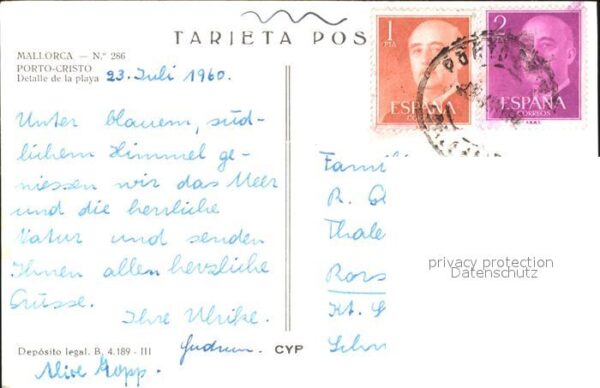 TARJETA POS
MALLORCA — N.º 286
PORTO-CRISTO
Detalle de la playa
23. Juli 1960.
Unter blauem, süd-
lichem Himmel ge-
niessen wir das Meer
und die herrliche
Natur und senden
Ihnen allen herzliche
Grüsse.
Ihre Ulrike.
Gudrun.
Depósito legal. B. 4.189 - III
CYP
1
PTA
ESPAÑA
CORREOS
2
ESPAÑA
CORREOS
Famili
R.
Thale
Rors
Kt. S
Schw
privacy protection
Datenschutz